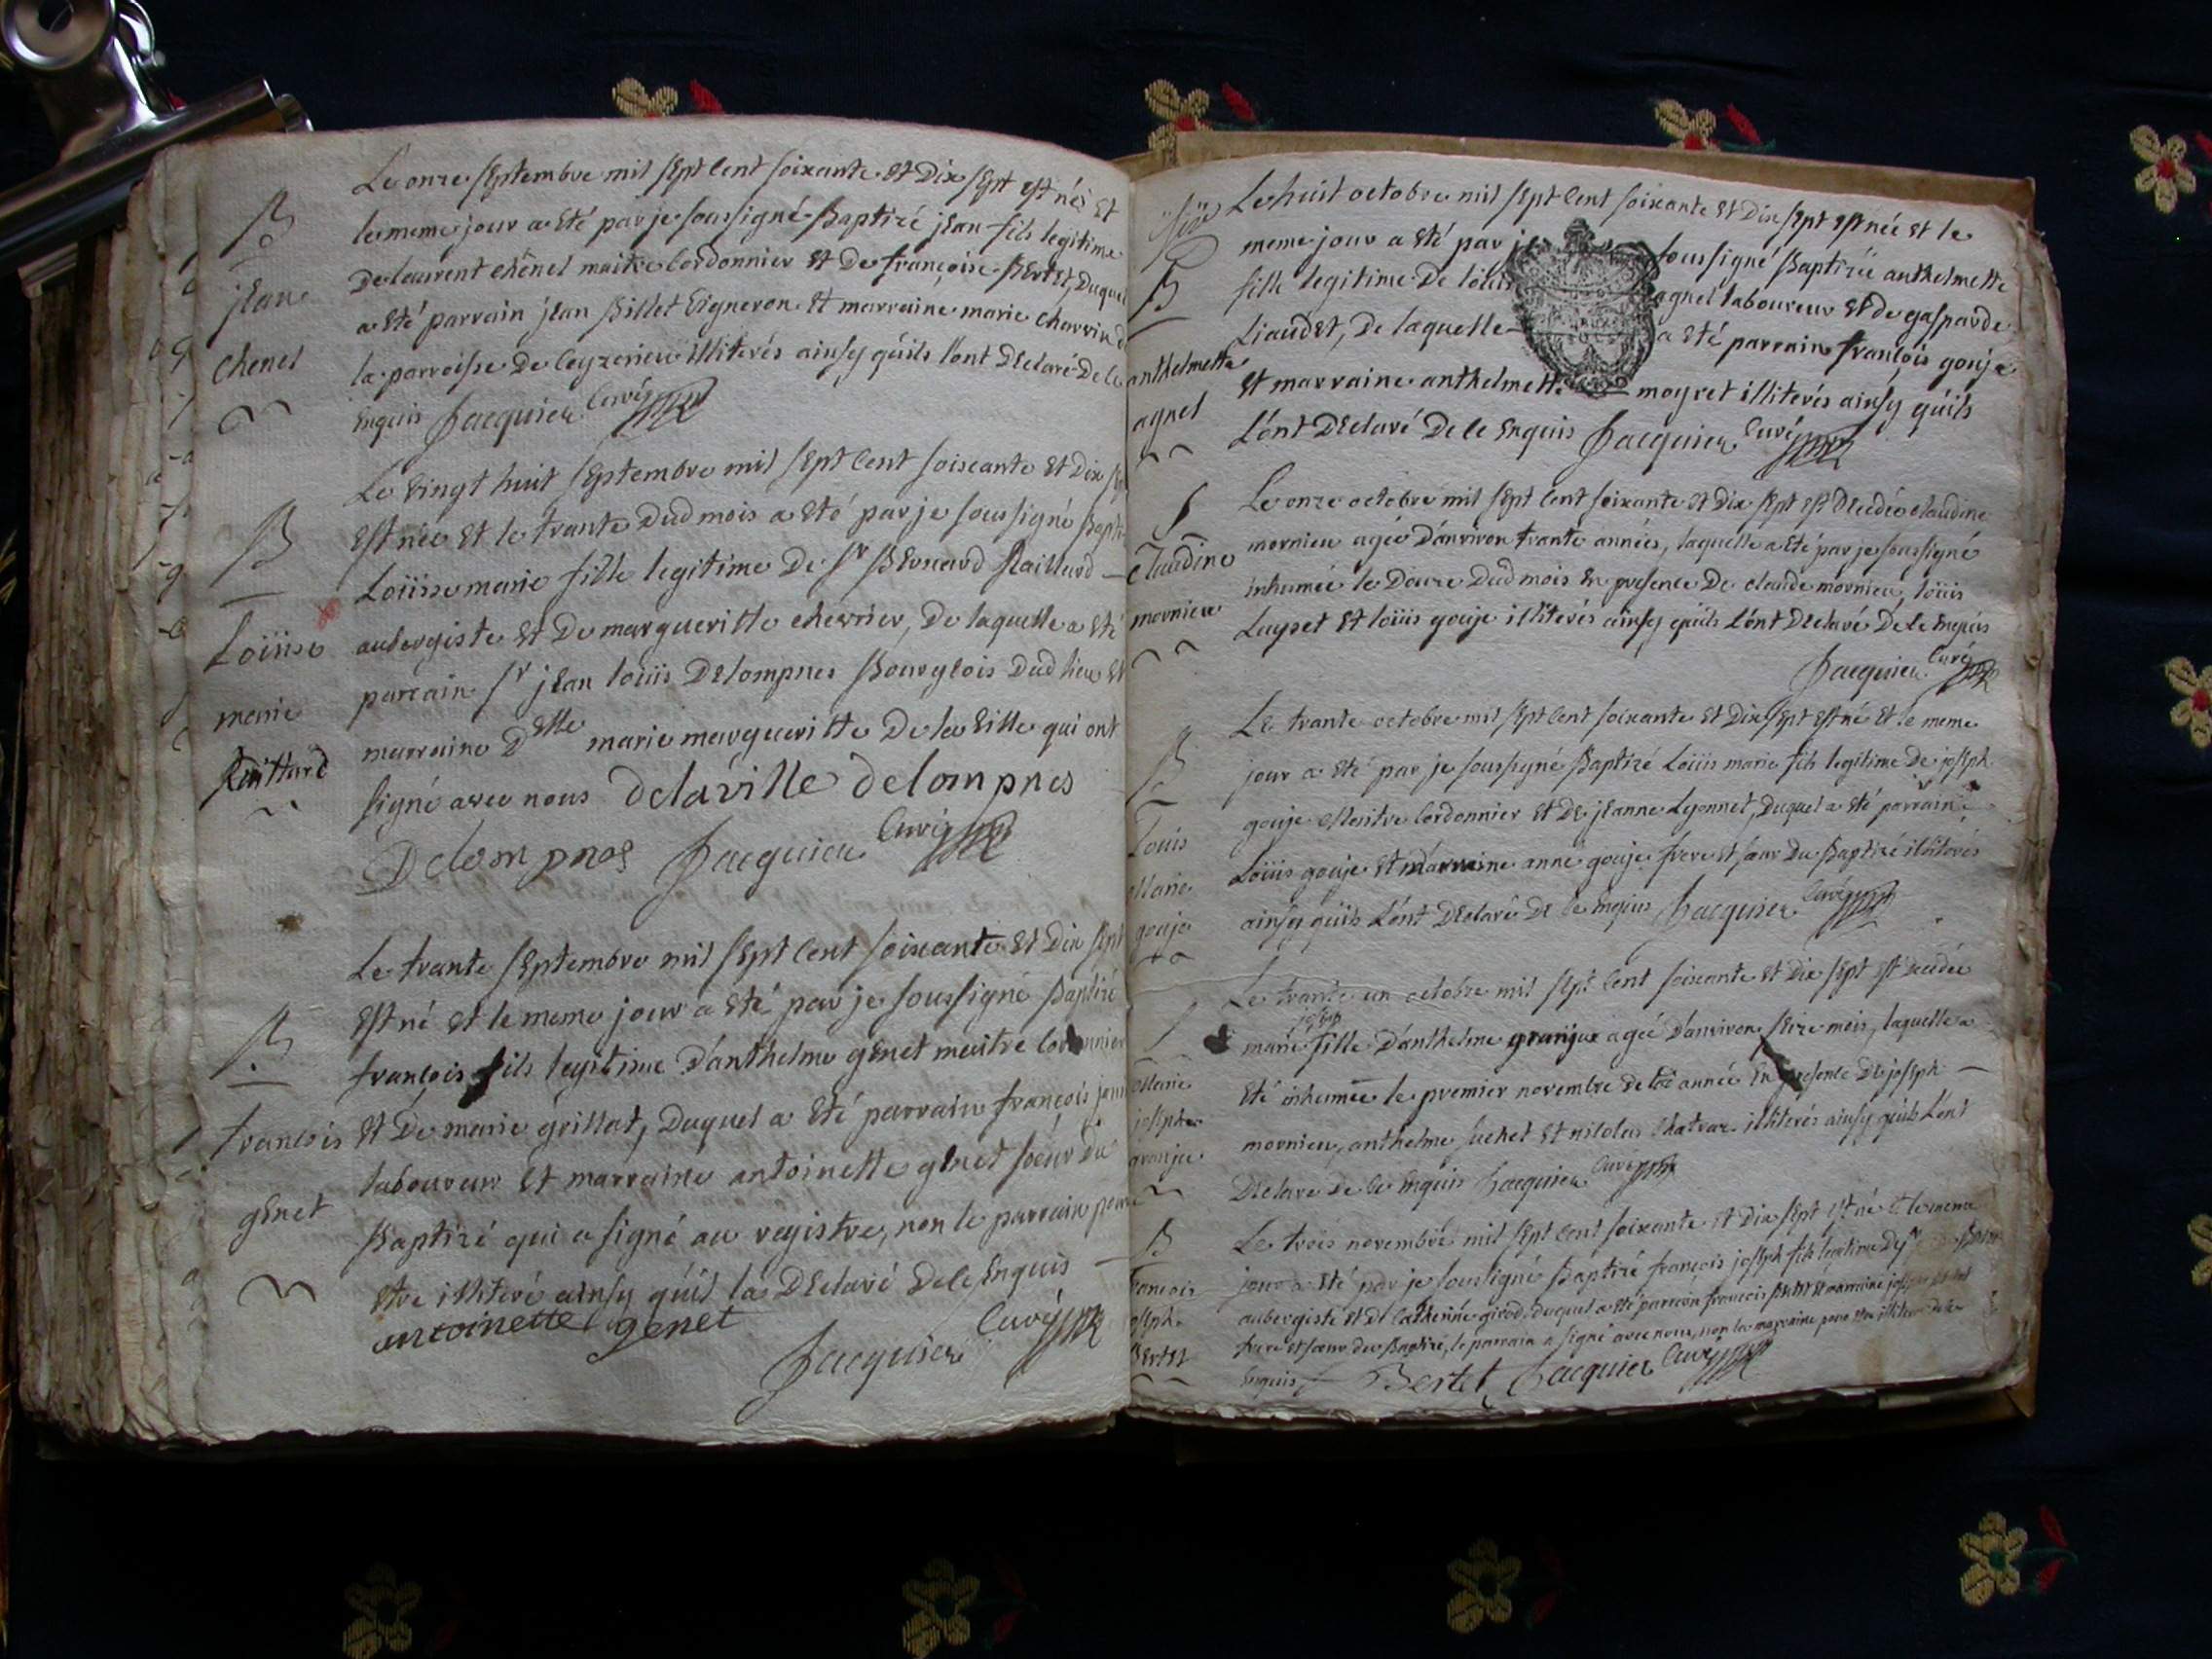 Le onze septembre mil sept cent soixante et dix sept est néé et
le meme jour a eté par je soussigné Baptizé jean fils legitime
De laurent chênel maitre Cordonnier et De françoise Bertet, Duquel
a eté parrain jean Billet Vigneron et marraine marie Charvin d
la parroisse De Ceyzerieu illiterés ainsy qúils lónt Declaré De ce
enquis Jacquier Curé
B
jean
chenel
Le Vingt huit septembre mil sept Cent soixante et Dix
est née et le trante Dud mois a eté par je soussigné Bapti
Loüise marie fille legitime De Sr Bernard Raillard
aubergiste et De margueritte chevrier, De laquelle a eté
parrain Sr jean loüis Delompnes Bourgeois Dud lieu et
marraine Delle marie margueritte De la Ville qui ont
signé avec nous Delaville delompnes
Delompnes Jacquier Curé
B
Loüise
marie
Raillard
Le trante septembre mil sept Cent soixante et Dix sept
est né et le meme jour a eté par je soussigné Baptizé
françois fils legitime D'anthelme genet maitre Cordonnier
et De marie grillat, Duquel a eté parrain françois
laboureur et marraine antoinette genet soeur du
Baptizé qui a signé au registre, non le parrain pour
etre illiteré ainsy qúil la Declaré De ce enquis
antoinette genet
Jacquier Curé
B
francois
genet
Le huit octobre mil sept Cent soixante et Dix sept est née et le
meme jour a eté par je soussigné Baptizée anthelmette
fille legitime De loüis agnel laboureur et de gasparde
Liaudet, De laquelle a eté parrain françois gouje
et marraine anthelmette moyret illiterés ainsy qúils
lónt Declaré De ce enquis Jacquier Curé
B
anthelmette
agnel
Le onze octobre mil sept Cent soixante et Dix sept est Decedée claudine
mornieu agée D'anviron trante années, laquelle a eté par je soussigné
inhumée le Douze Dud mois en presence De claude mornieu, loüis
Luyset et loüis gouje illiterés ainsy qúils lónt Declaré De ce enquis
Jacquier Curé
S
Claudine
mornieu
Le trante octobre mil sept Cent soixante et Dix sept est né et le meme
jour a eté par je soussigné Baptizé Loüis marie fils legitime De joseph
gouje Maitre Cordonnier et De jeanne Lyonnet, Duquel a eté parrain
Loüis gouje et marraine anne gouje frere et sœur Du Baptizé illiterés
ainsy qúils lónt Declaré De ce enquis Jacquier Curé
B
Louis
Marie
gouje
Le trante un octobre mil sept Cent soixante et Dix sept est decedée
marie joseph fille D'anthelme granjux agée D'anviron seize mois, laquelle a
eté inhumée le premier novembre De lad année en presence De joseph
mornieu, anthelme suchet et nicolas illiterés ainsy qúils lónt
Declare De ce enquis Jacquier Curé
S
Marie
joseph
granju
Le trois novembre mil sept Cent soixante et Dix sept est né et le meme
jour a eté par je soussigné Baptizé françois joseph fils legitime De
aubergiste et De Catherine girod, Duquel a eté parrain francois Bertet et marraine
frere et sœur du Baptizé, le parrain a signé avec nous, non la marraine pour etre illiterée De ce
enquis Bertet Jacquier Curé
B
francois
joseph
Bertet